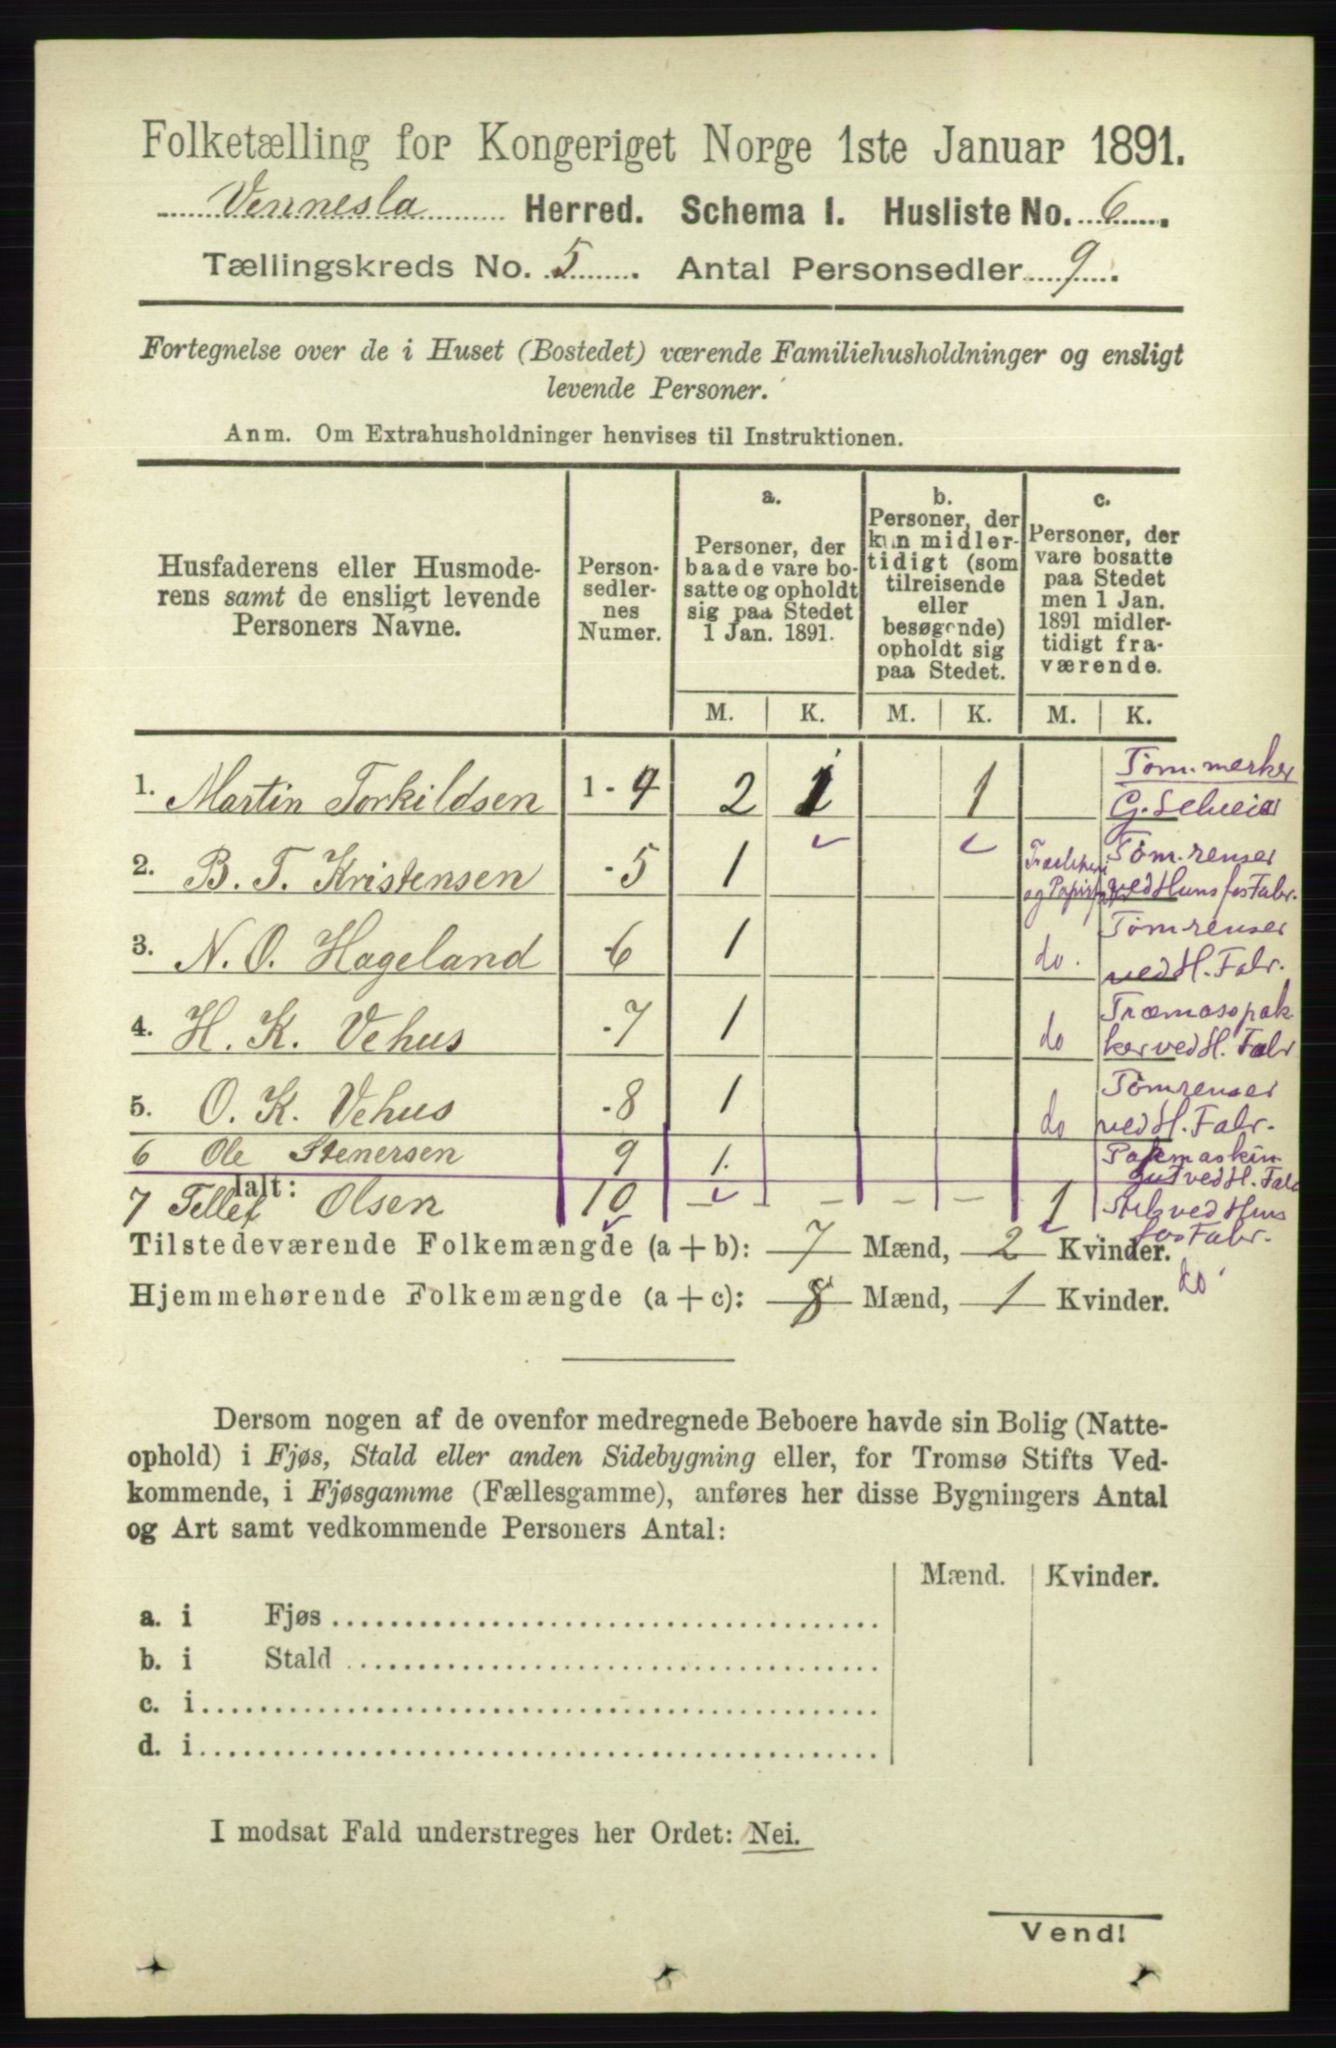 Folketælling for Kongeriget Norge 1ste Januar 1891.
Vennesla Herred. Schema I. Husliste No. 6.
Tællingskreds No. 5. Antal Personsedler 9.
Fortegnelse over de i Huset (Bostedet) værende Familiehusholdninger og ensligt
levende Personer.
Anm. Om Extrahusholdninger henvises til Instruktionen.
Husfaderens eller Husmode-
rens samt de ensligt levende
Personers Navne.
Person-
sedler-
nes
Numer.
a.
Personer, der
baade vare bo-
satte og opholdt
sig paa Stedet
1 Jan. 1891.
b.
Personer, der
kun midler-
tidigt (som
tilreisende
eller
besøgende)
opholdt sig
paa Stedet.
c.
Personer, der
vare bosatte
paa Stedet
men 1 Jan.
1891 midler-
tidigt fra-
værende.
M. K. M. K. M. K.
1. Martin Torkildsen 1-4 2 1 1 Tøm.merker
2. B. T. Kristensen -5 1 Tøm.renser
ved Hunsfos Fabr.
3. N. O. Hageland -6 1 do. Tømrenser
ved H. Fabr.
4. H. K. Vehus -7 1 do Træmassepak
ker ved H. Fabr
5. O. K. Vehus -8 1 do Tømrenser
ved H. Fabr.
6 Ole Stenersen 9 1. Papmaskin
gut ved H. Fabr
Ialt:
7 Tellef Olsen 10 – – – – 1 ved Huns
fos Fabr.
Tilstedeværende Folkemængde (a + b): 7 Mænd, 2 Kvinder.
do
Hjemmehørende Folkemængde (a + c): 8 Mænd, 1 Kvinder.
Dersom nogen af de ovenfor medregnede Beboere havde sin Bolig (Natte-
ophold) i Fjøs, Stald eller anden Sidebygning eller, for Tromsø Stifts Ved-
kommende, i Fjøsgamme (Fællesgamme), anføres her disse Bygningers Antal
og Art samt vedkommende Personers Antal:
Mænd. Kvinder.
a. i Fjøs
b. i Stald
c. i
d. i
I modsat Fald understreges her Ordet: Nei.
Vend!